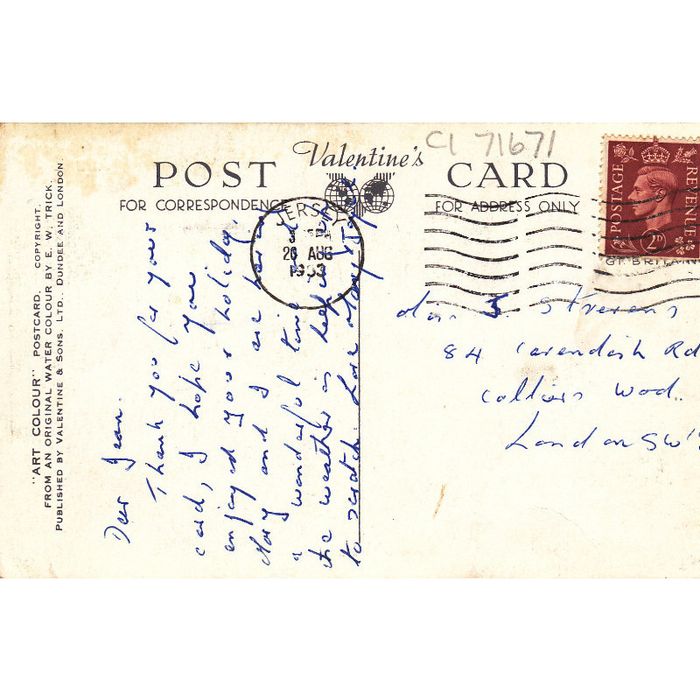 "ART COLOUR" POSTCARD. COPYRIGHT.
FROM AN ORIGINAL WATER COLOUR BY E. W. TRICK.
PUBLISHED BY VALENTINE & SONS. LTD. DUNDEE AND LONDON.
Valentine's
CI 71671
POST CARD
FOR CORRESPONDENCE
FOR ADDRESS ONLY
JERSEY
26 AUG
1953
POSTAGE
REVENUE
2D
GT. BRITAIN
Dear Jean.
Thank you for your
card, I hope you
enjoyed your holiday.
Mary and I are having
a wonderful time and
the weather is
to scratch. Love Mary
S. Stevens
84 Cavendish Rd
Colliers Wood.
London SW